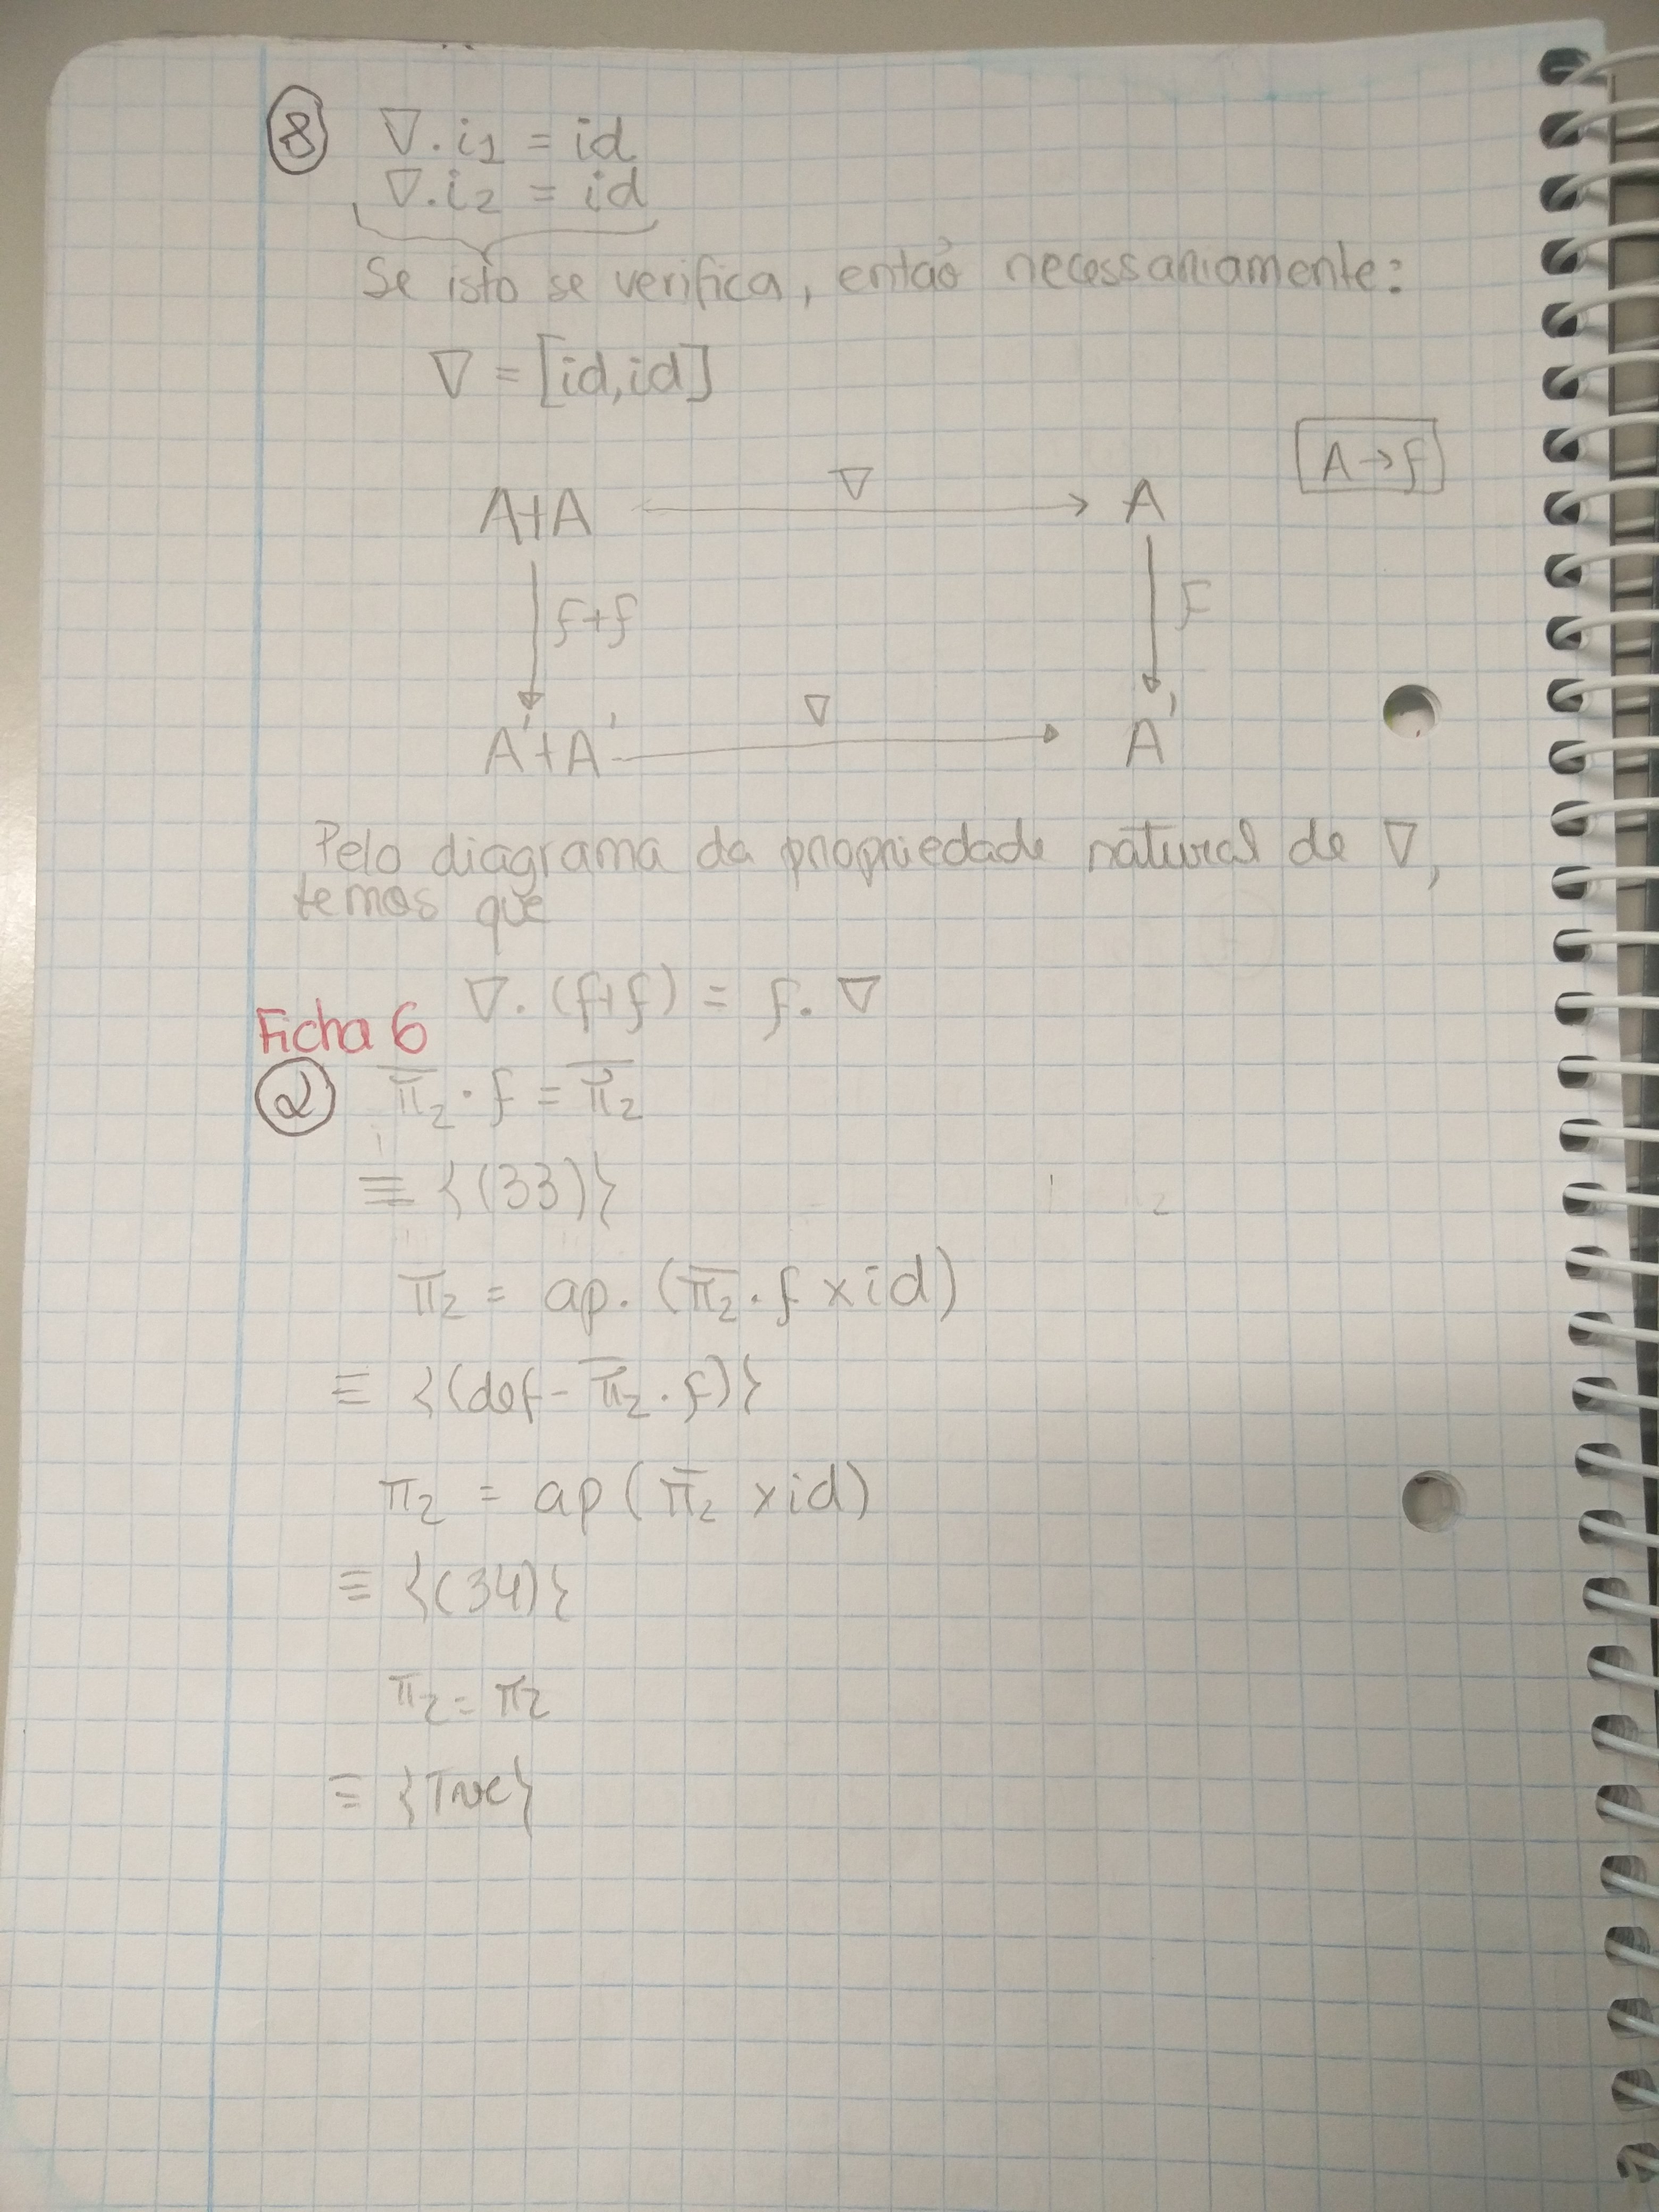 8 ∇.i1 = id
∇.i2 = id
Se isto se verifica, então necessariamente:
∇ = [id,id]
A→f
A+A ∇ A
f+f f
A'+A' ∇ A'
Pelo diagrama da propriedade natural de ∇,
temos que
∇.(f+f) = f.∇
Ficha 6
2 π̅₂ · f = π̅₂
≡ {(33)}
π₂ = ap. (π̅₂ . f × id)
≡ {(def - π̅₂ . f)}
π₂ = ap (π̅₂ × id)
≡ {(34)}
π₂ = π₂
≡ {True}